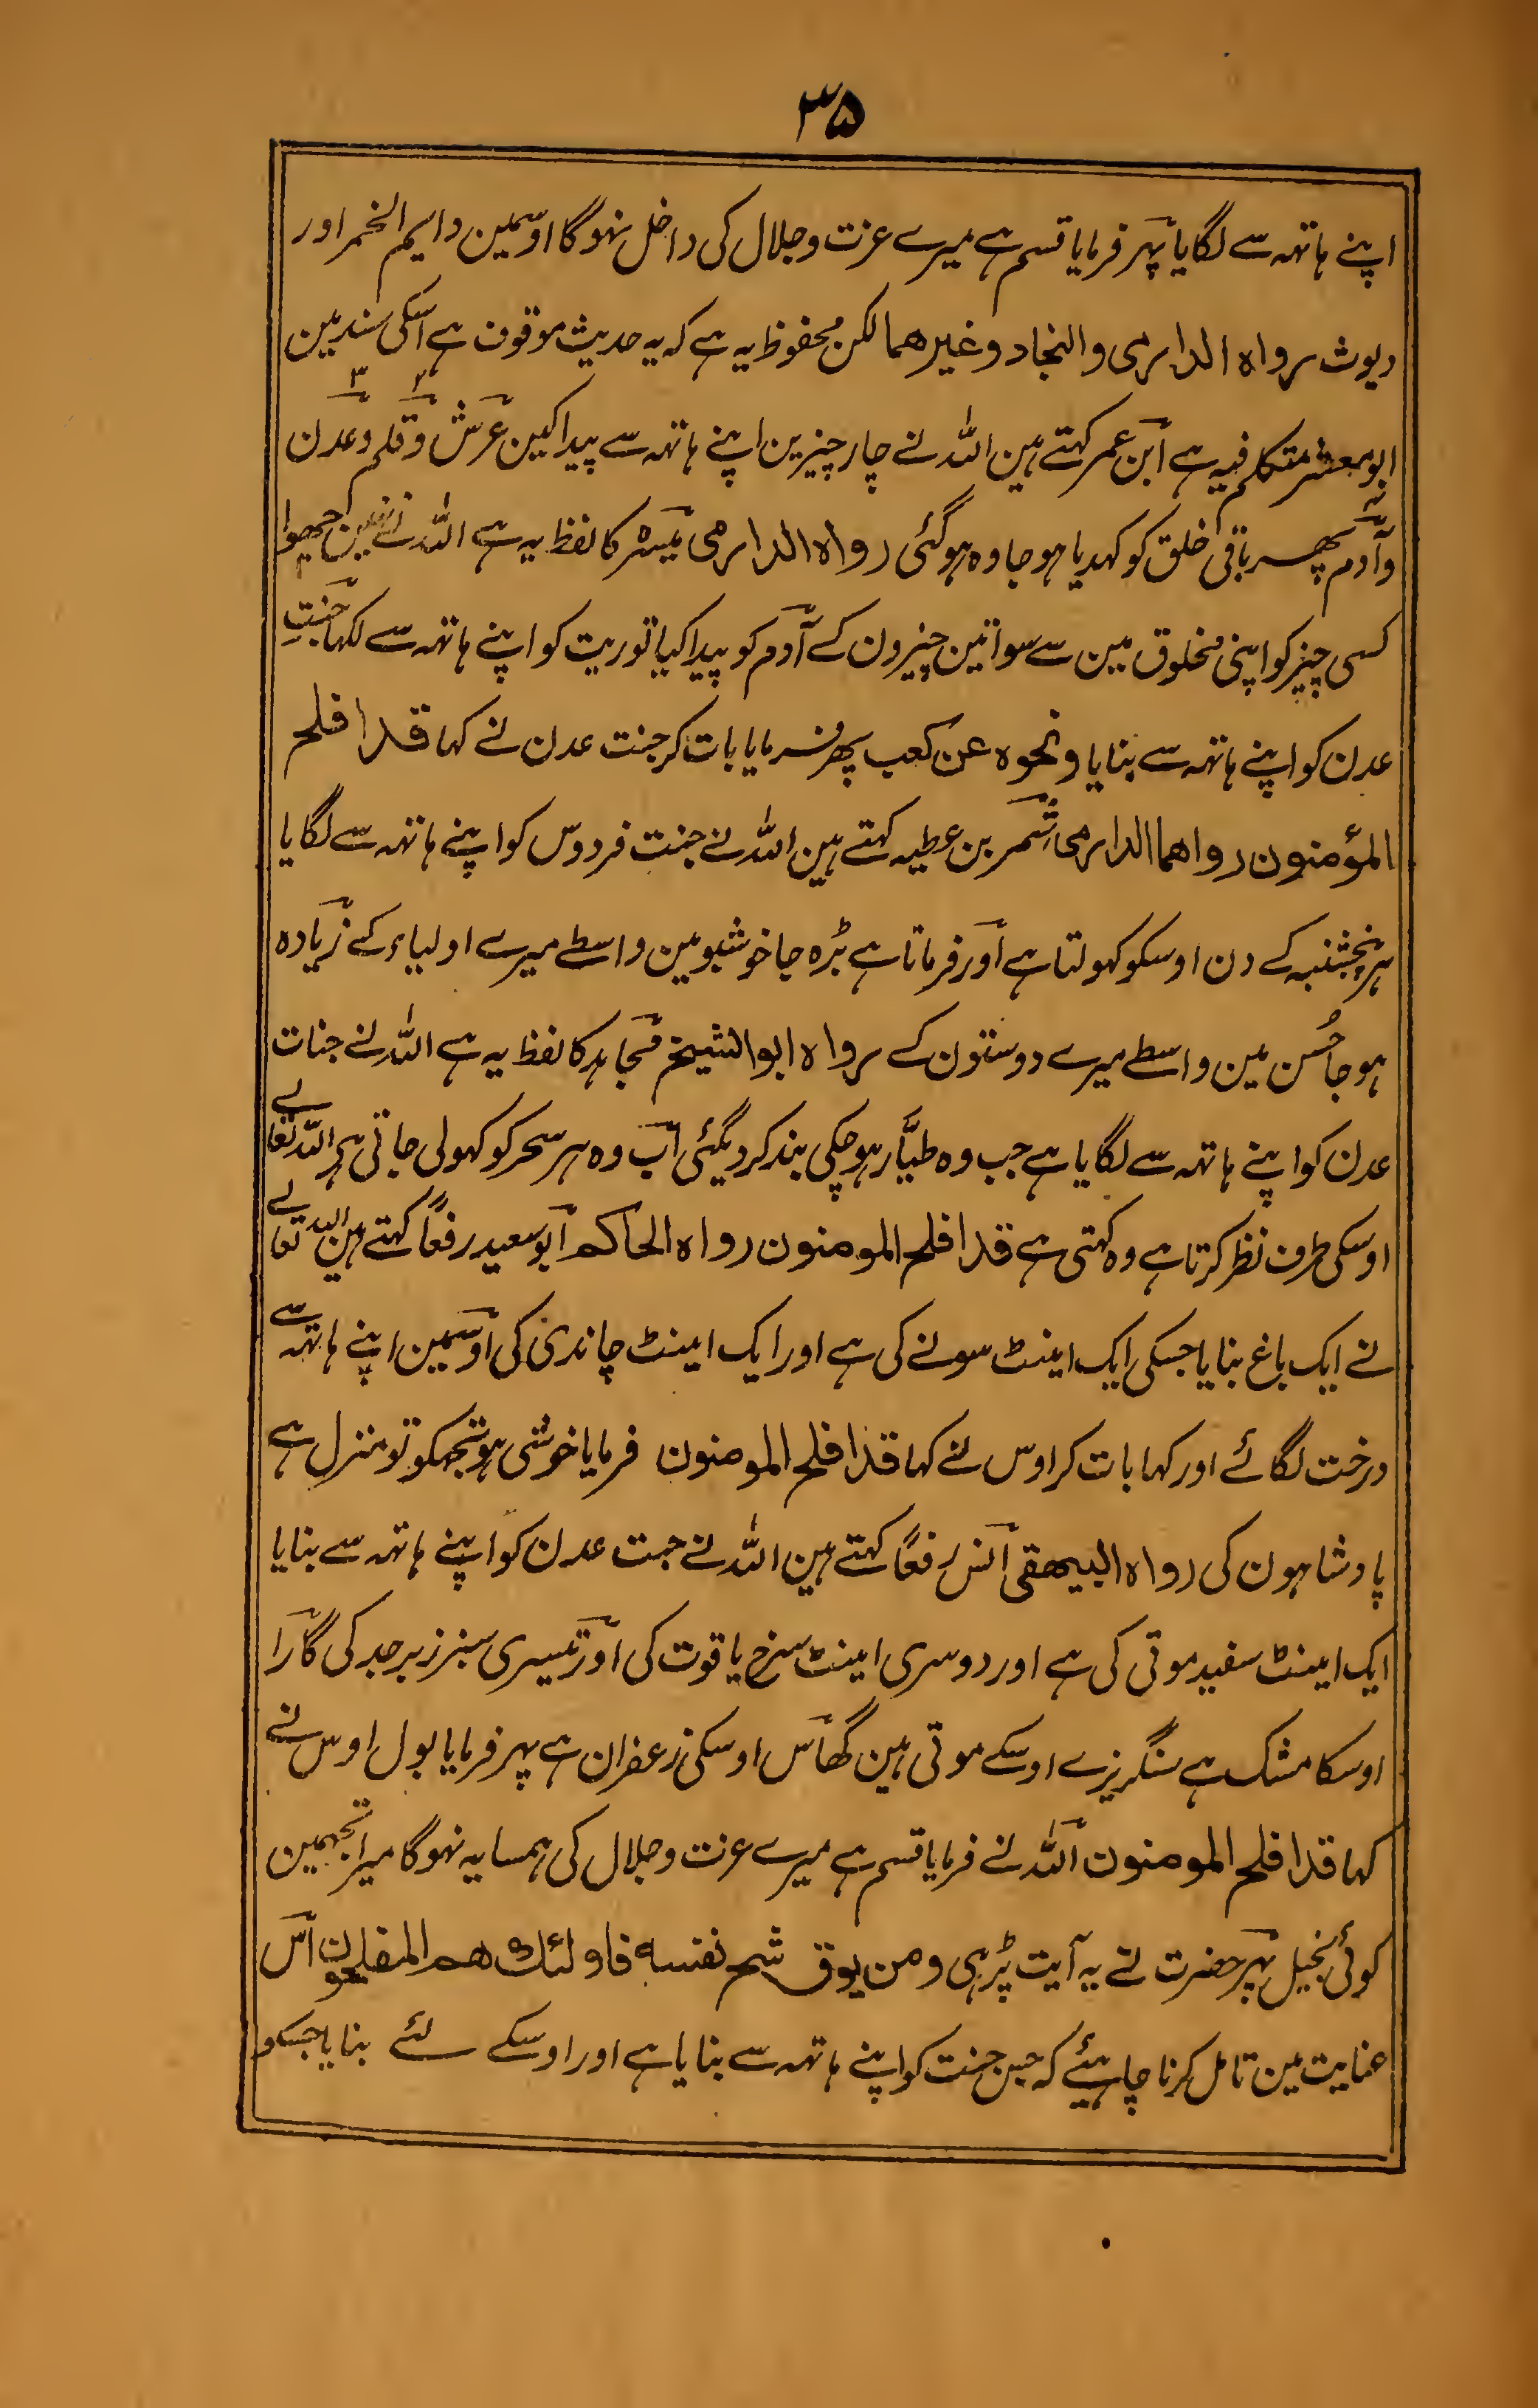 ۳۵
اپنے ہاتہہ سے لگایا پہر فرمایا قسم ہے میرے عزت وجلال کی داخل نہوگا اوسمین دایم الخمر اور
دیوث رواہ الدارمی والنجاد وغیرھما لکن محفوظ یہ ہے کہ یہ حدیث موقوف ہے اسکی سند مین
ابو معشر متکلم فیہ ہے ابن عمر کہتے ہین اللہ نے چار چیزین اپنے ہاتہہ سے پیدا کین عرش وقلم وعدن
وآدم پھر باقی خلق کو کہدیا ہو جا وہ ہوگئی رواہ الدارمی میسرہ کا لفظ یہ ہے اللہ نے نہین چھوا
کسی چیز کو اپنی مخلوق مین سے سوا تین چیزون کے آدم کو پیدا کیا توریت کو اپنے ہاتہہ سے لکہا جنت
عدن کو اپنے ہاتہہ سے بنایا ونحوہ عن کعب پھر فرمایا بات کر جنت عدن نے کہا قد افلح
المؤمنون رواھما الدارمی شمر بن عطیہ کہتے ہین اللہ نے جنت فردوس کو اپنے ہاتہہ سے لگایا
ہر پنجشنبہ کے دن اوسکو کہولتا ہے اور فرماتا ہے بڑہ جا خوشبو مین واسطے میرے اولیاء کے زیادہ
ہو جا حُسن مین واسطے میرے دوستون کے رواہ ابو الشیخ مجاہد کا لفظ یہ ہے اللہ نے جنات
عدن کو اپنے ہاتہہ سے لگایا ہے جب وہ طیّار ہو چکی بند کر دیگئی اب وہ ہر سحر کو کہولی جاتی ہی اللہ تعالے
اوسکی طرف نظر کرتا ہے وہ کہتی ہے قد افلح المومنون رواہ الحاکم ابو سعید رفعًا کہتے ہین اللہ تعالے
نے ایک باغ بنایا جسکی ایک اینٹ سونے کی ہے اور ایک اینٹ چاندی کی اوسمین اپنے ہاتہہ سے
درخت لگائے اور کہا بات کر اوس نے کہا قد افلح المومنون فرمایا خوشی ہو تجہکو تو منزل ہے
پادشاہون کی رواہ البیھقی انس رفعًا کہتے ہین اللہ نے جنت عدن کو اپنے ہاتہہ سے بنایا
ایک اینٹ سفید موتی کی ہے اور دوسری اینٹ سرخ یاقوت کی اور تیسری سبز زبرجد کی گارا
اوسکا مشک ہے سنگریزے اوسکے موتی ہین گھاس اوسکی زعفران ہے پہر فرمایا بول اوس نے
کہا قد افلح المومنون اللہ نے فرمایا قسم ہے میرے عزت وجلال کی ہمسایہ نہوگا میرا تجہمین
کوئی بخیل پہر حضرت نے یہ آیت پڑہی ومن یوق شح نفسہ فاولئك ھم المفلحون اس
عنایت مین تامل کرنا چاہیئے کہ جس جنت کو اپنے ہاتہہ سے بنایا ہے اور اوسکے لئے بنایا جسکو